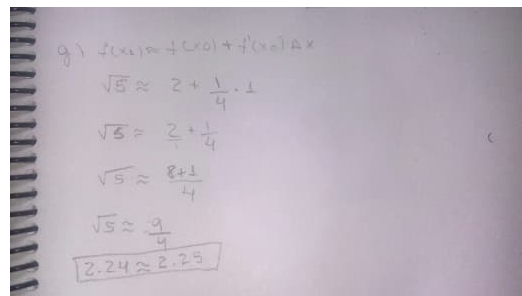 g) f(x₀) ≈ f(x₀) + f'(x₀) Δx
√5 ≈ 2 + 1/4 · 1
√5 ≈ 2/1 + 1/4
√5 ≈ 8+1/4
√5 ≈ 9/4
2.24 ≈ 2.25